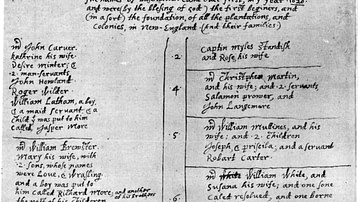 The names of
which came over first, in ye year 1620.
and were (by the blesing of god) the first beginers, and
(in a sort) the foundation, of all the plantations, and
Colonies, in New-England. (And their families)
mr John Carver.
katherine his wife.
Desire minter; &
2. man-servants
John Howland
Roger Wilder.
William Latham, a boy.
& a maid servant. & a
child yt was put to him
called Jasper More
mr William Brewster.
Mary his wife, with
2. sons, whose names
were Love, & Wrasling
and a boy was put to
him called Richard More; and another
of his Brothers
the rest of his children
2
Captin myles Standish
and Rose, his wife
4
mr Christopher martin,
and his wife; and 2. servants,
Salamon prower, and
John Langemore
5
mr William Mullines, and his
wife; and 2. children
Joseph & priscila; and a servant
Robart Carter.
6
mr William White, and
Susana his wife; and one sone
caled resolved, and one borne